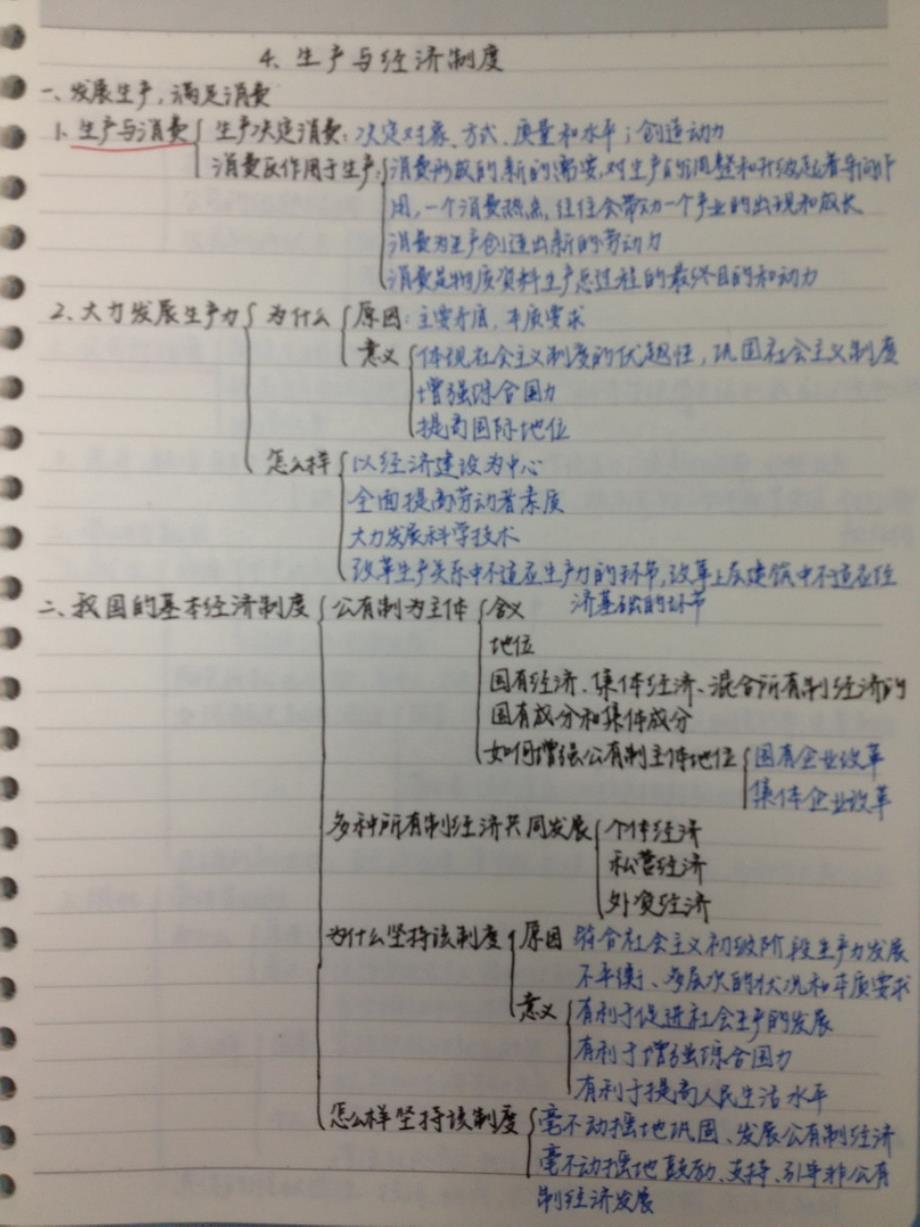 4、生产与经济制度
一、发展生产，满足消费
1、生产与消费 生产决定消费：决定对象、方式、质量和水平；创造动力
消费反作用于生产：消费形成的新的需要，对生产的调整和升级起着导向作
用，一个消费热点，往往会带动一个产业的出现和成长
消费为生产创造出新的劳动力
消费是物质资料生产总过程的最终目的和动力
2、大力发展生产力 为什么 原因：主要矛盾，本质要求
意义 体现社会主义制度的优越性，巩固社会主义制度
增强综合国力
提高国际地位
怎么样 以经济建设为中心
全面提高劳动者素质
大力发展科学技术
改革生产关系中不适应生产力的环节，改革上层建筑中不适应经
济基础的环节
二、我国的基本经济制度 公有制为主体 含义
地位
国有经济、集体经济、混合所有制经济的
国有成分和集体成分
如何增强公有制主体地位 国有企业改革
集体企业改革
多种所有制经济共同发展 个体经济
私营经济
外资经济
为什么坚持该制度 原因 符合社会主义初级阶段生产力发展
不平衡、多层次的状况和本质要求
意义 有利于促进社会生产的发展
有利于增强综合国力
有利于提高人民生活水平
怎么样坚持该制度 毫不动摇地巩固、发展公有制经济
毫不动摇地鼓励、支持、引导非公有
制经济发展